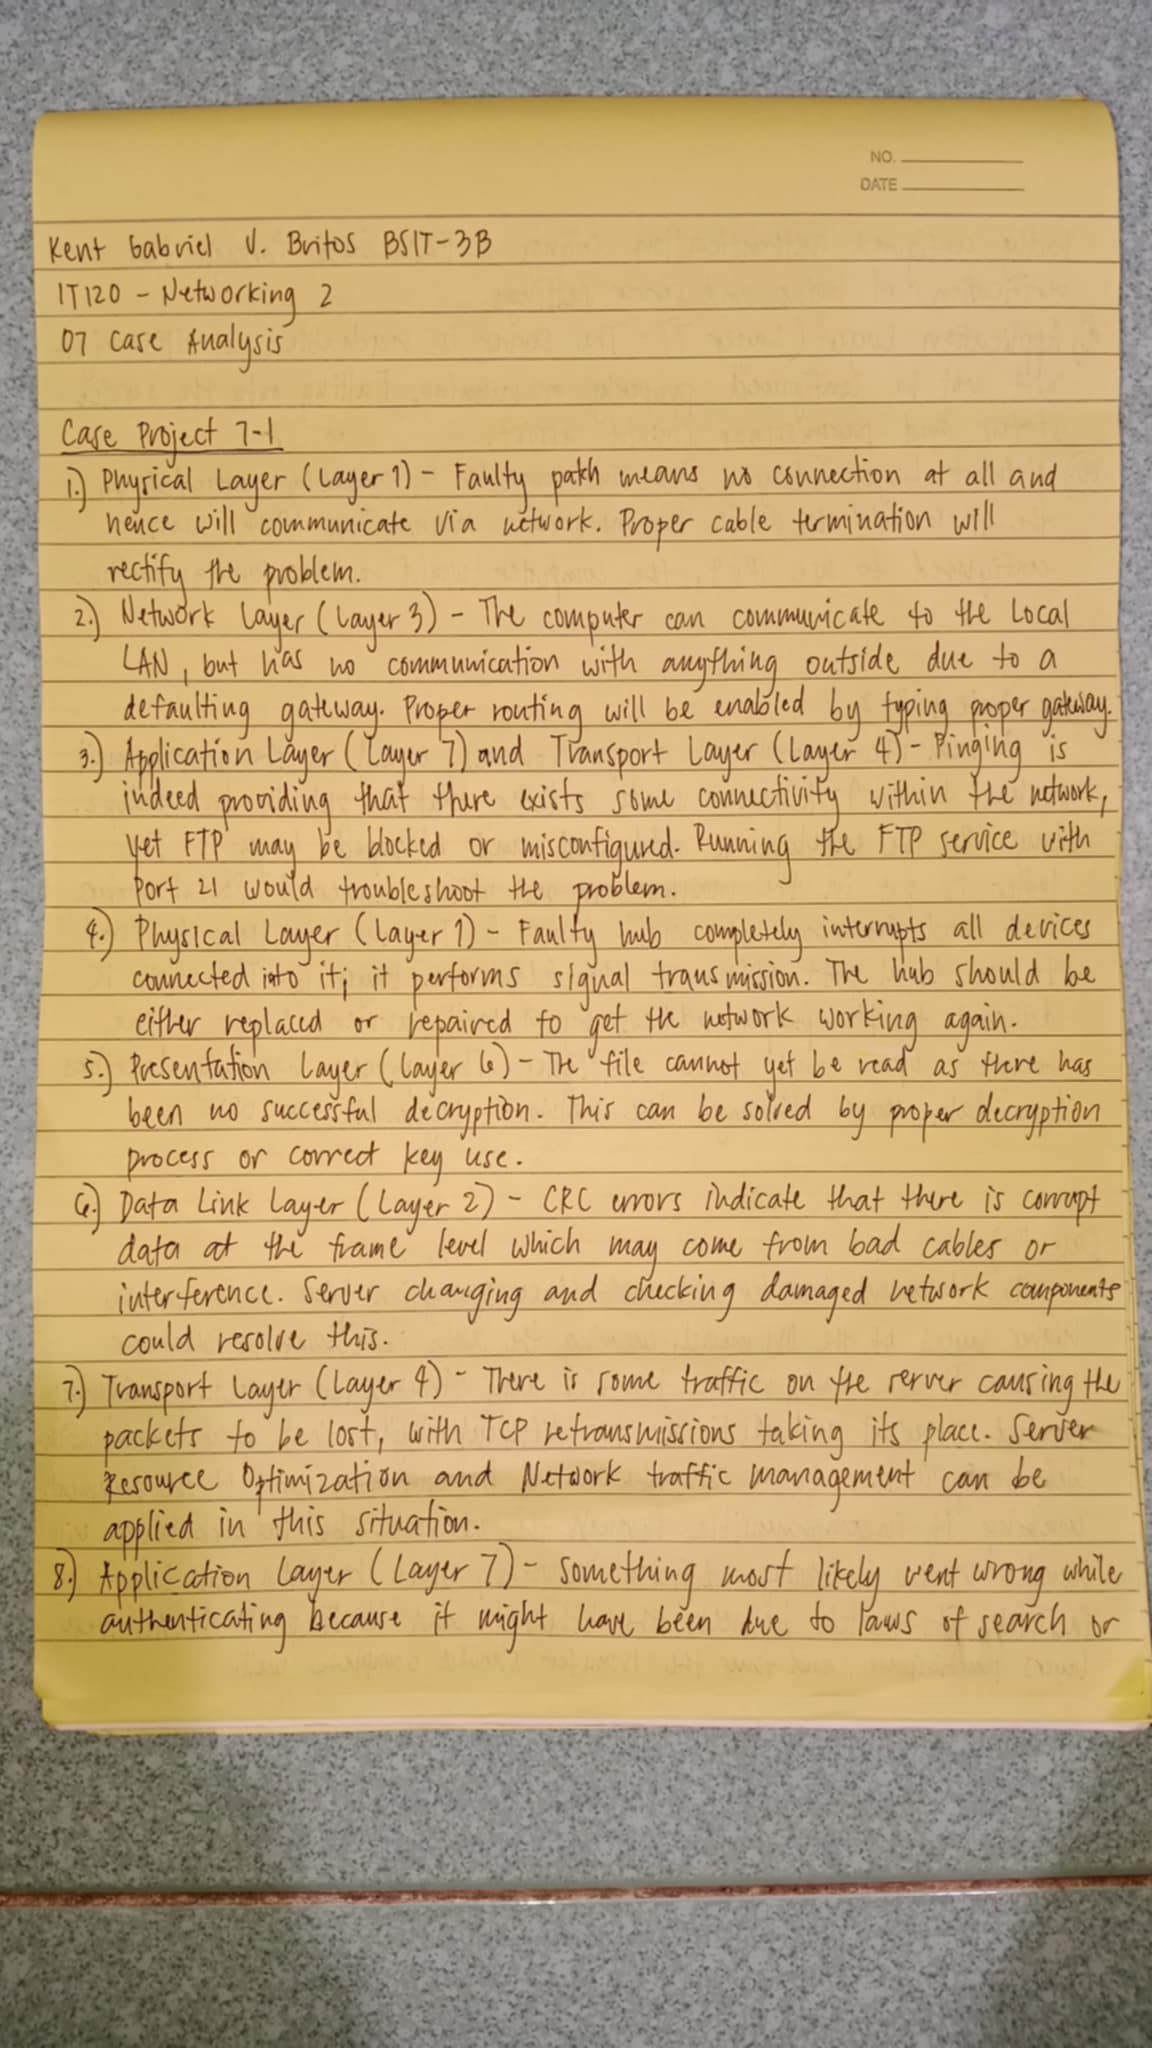 NO.
DATE
Kent Gabriel V. Britos BSIT-3B
IT120 - Networking 2
07 Case Analysis
Case Project 7-1
1.) Physical Layer (Layer 1) - Faulty path means no connection at all and
hence will communicate via network. Proper cable termination will
rectify the problem.
2.) Network Layer (Layer 3) - The computer can communicate to the Local
LAN, but has no communication with anything outside due to a
defaulting gateway. Proper routing will be enabled by typing proper gateway.
3.) Application Layer (Layer 7) and Transport Layer (Layer 4) - Pinging is
indeed providing that there exists some connectivity within the network,
yet FTP may be blocked or misconfigured. Running the FTP service with
Port 21 would troubleshoot the problem.
4.) Physical Layer (Layer 1) - Faulty hub completely interrupts all devices
connected into it; it performs signal transmission. The hub should be
either replaced or repaired to get the network working again.
5.) Presentation Layer (Layer 6) - The file cannot yet be read as there has
been no successful decryption. This can be solved by proper decryption
process or correct key use.
6.) Data Link Layer (Layer 2) - CRC errors indicate that there is corrupt
data at the frame level which may come from bad cables or
interference. Server changing and checking damaged network components
could resolve this.
7.) Transport Layer (Layer 4) - There is some traffic on the server causing the
packets to be lost, with TCP retransmissions taking its place. Server
Resource Optimization and Network traffic management can be
applied in this situation.
8.) Application Layer (Layer 7) - Something most likely went wrong while
authenticating because it might have been due to laws of search or